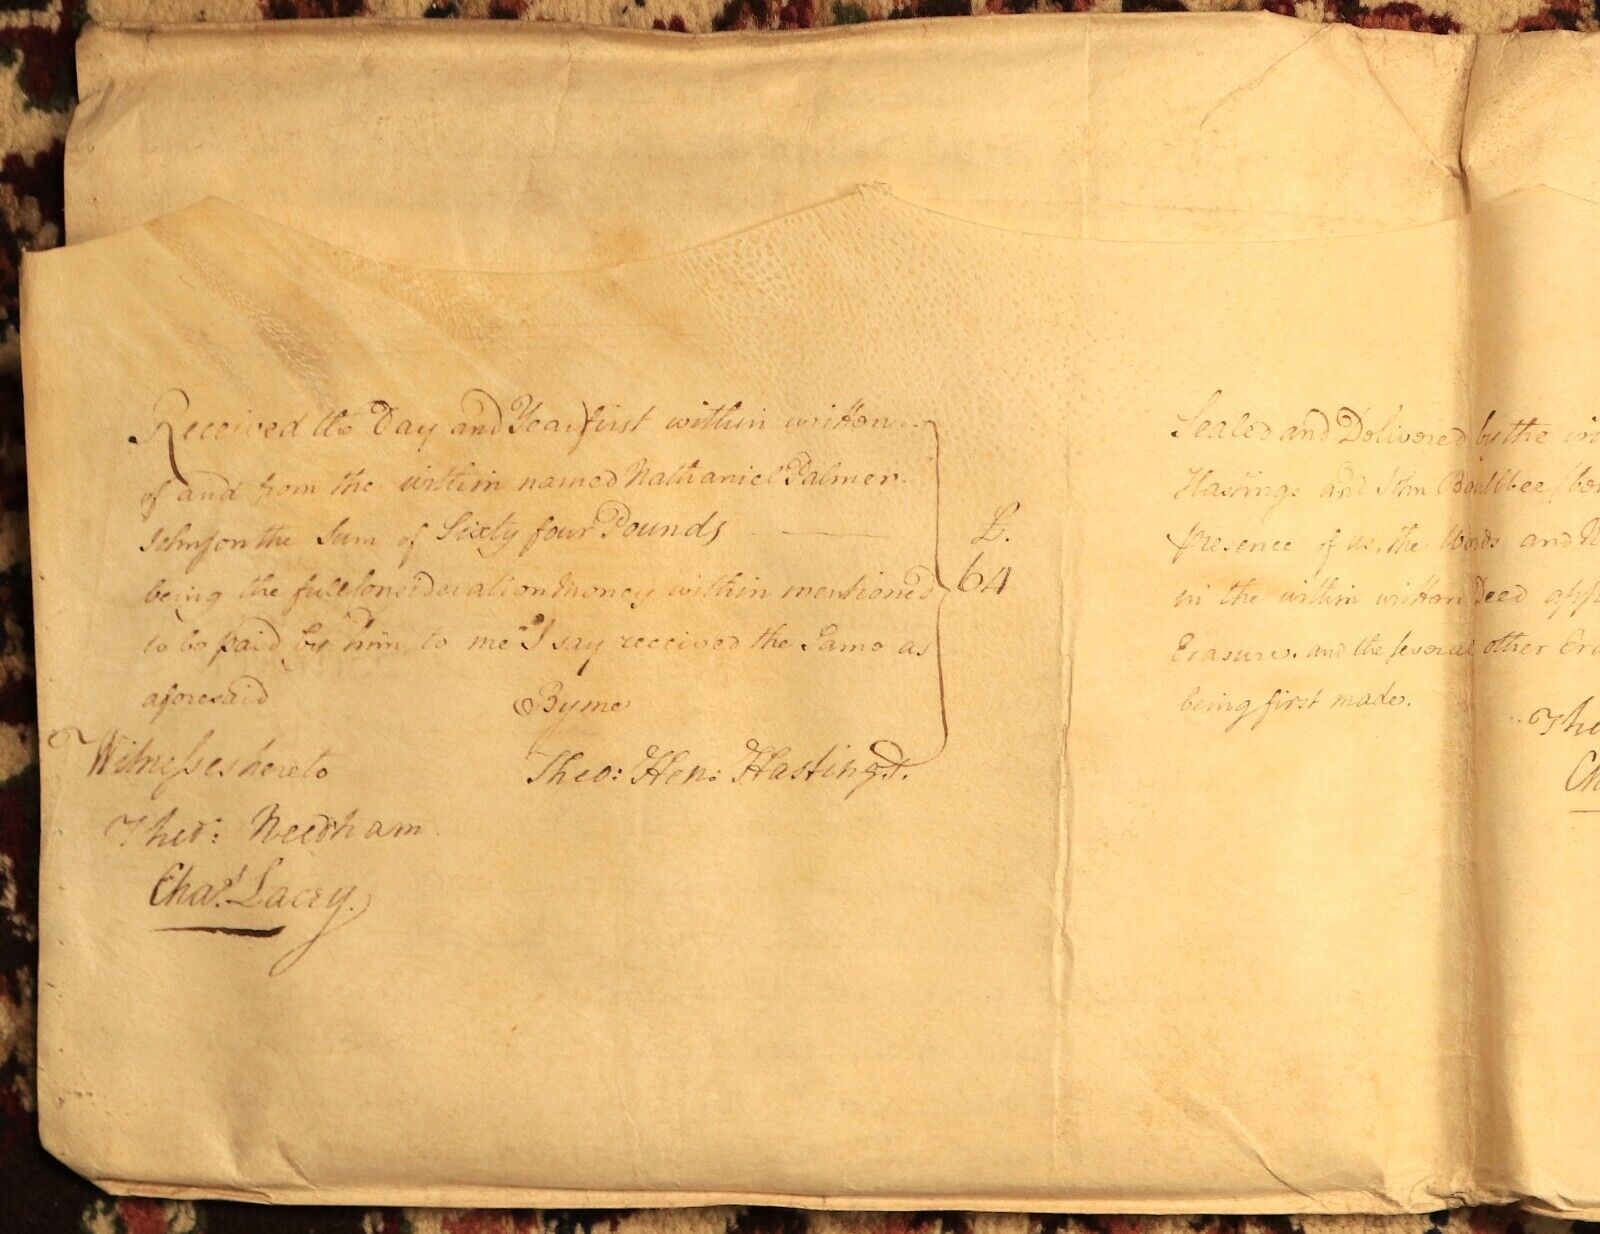 Received the Day and Year first within written
of and from the within named Nathaniel Palmer
Johnson the Sum of Sixty four Pounds
being the full Consideration Money within mentioned
to be paid by him to me I say received the Same as
aforesaid By me
£.
64
Witnesses hereto
Theo: Hen: Hastings.
Theo: Needham
Chas. Lacey.
Sealed and Delivered by the
Hastings and John Boultbee
presence of us, the Words and
in the within written Deed
Erasures and the several other
being first made.